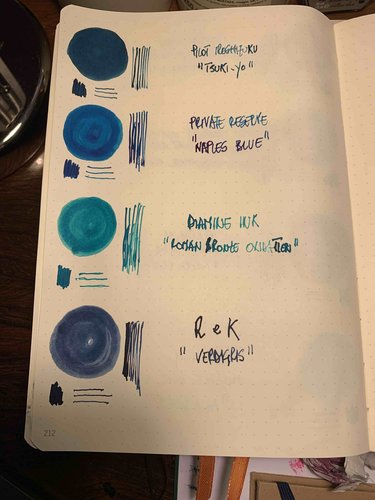 PILOT IROSHIZUKU
"TSUKI-YO"
PRIVATE RESERVE
"NAPLES BLUE"
DIAMINE INK
"ROMAN BRONZE OXIDATION"
R e K
"VERDIGRIS"
212